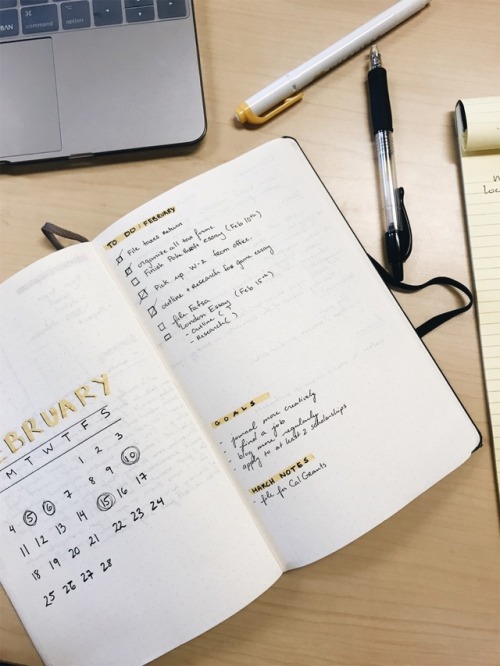 command
option
TO DO / FEBRUARY
File taxes return
organize all tax forms
Finish essay (Feb 10th)
Pick up W-2 from office.
outline + Research for essay
file Fafsa
London Essay (Feb 15th)
- outline ( )
- Research ( )
GOALS
- journal more creatively
- find a job
- blog more regularly
- apply to at least 2 scholarships
MARCH NOTES
- file for Cal Grants
EBRUARY
M T W T F S
1 2 3
4 5 6 7 8 9 10
11 12 13 14 15 16 17
18 19 20 21 22 23 24
25 26 27 28